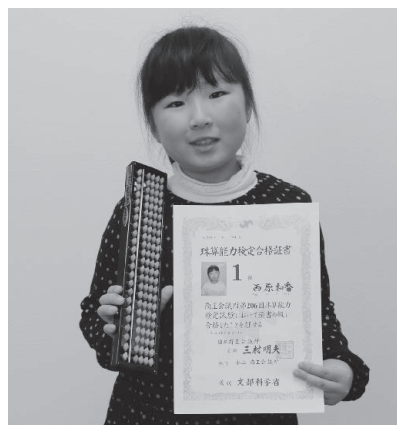 珠算能力検定合格証書
1級
商工会議所第206回珠算能力
検定試験において頭書の級に
合格したことを証する
日本商工会議所
会頭 三村明夫
商工会議所
後援 文部科学省